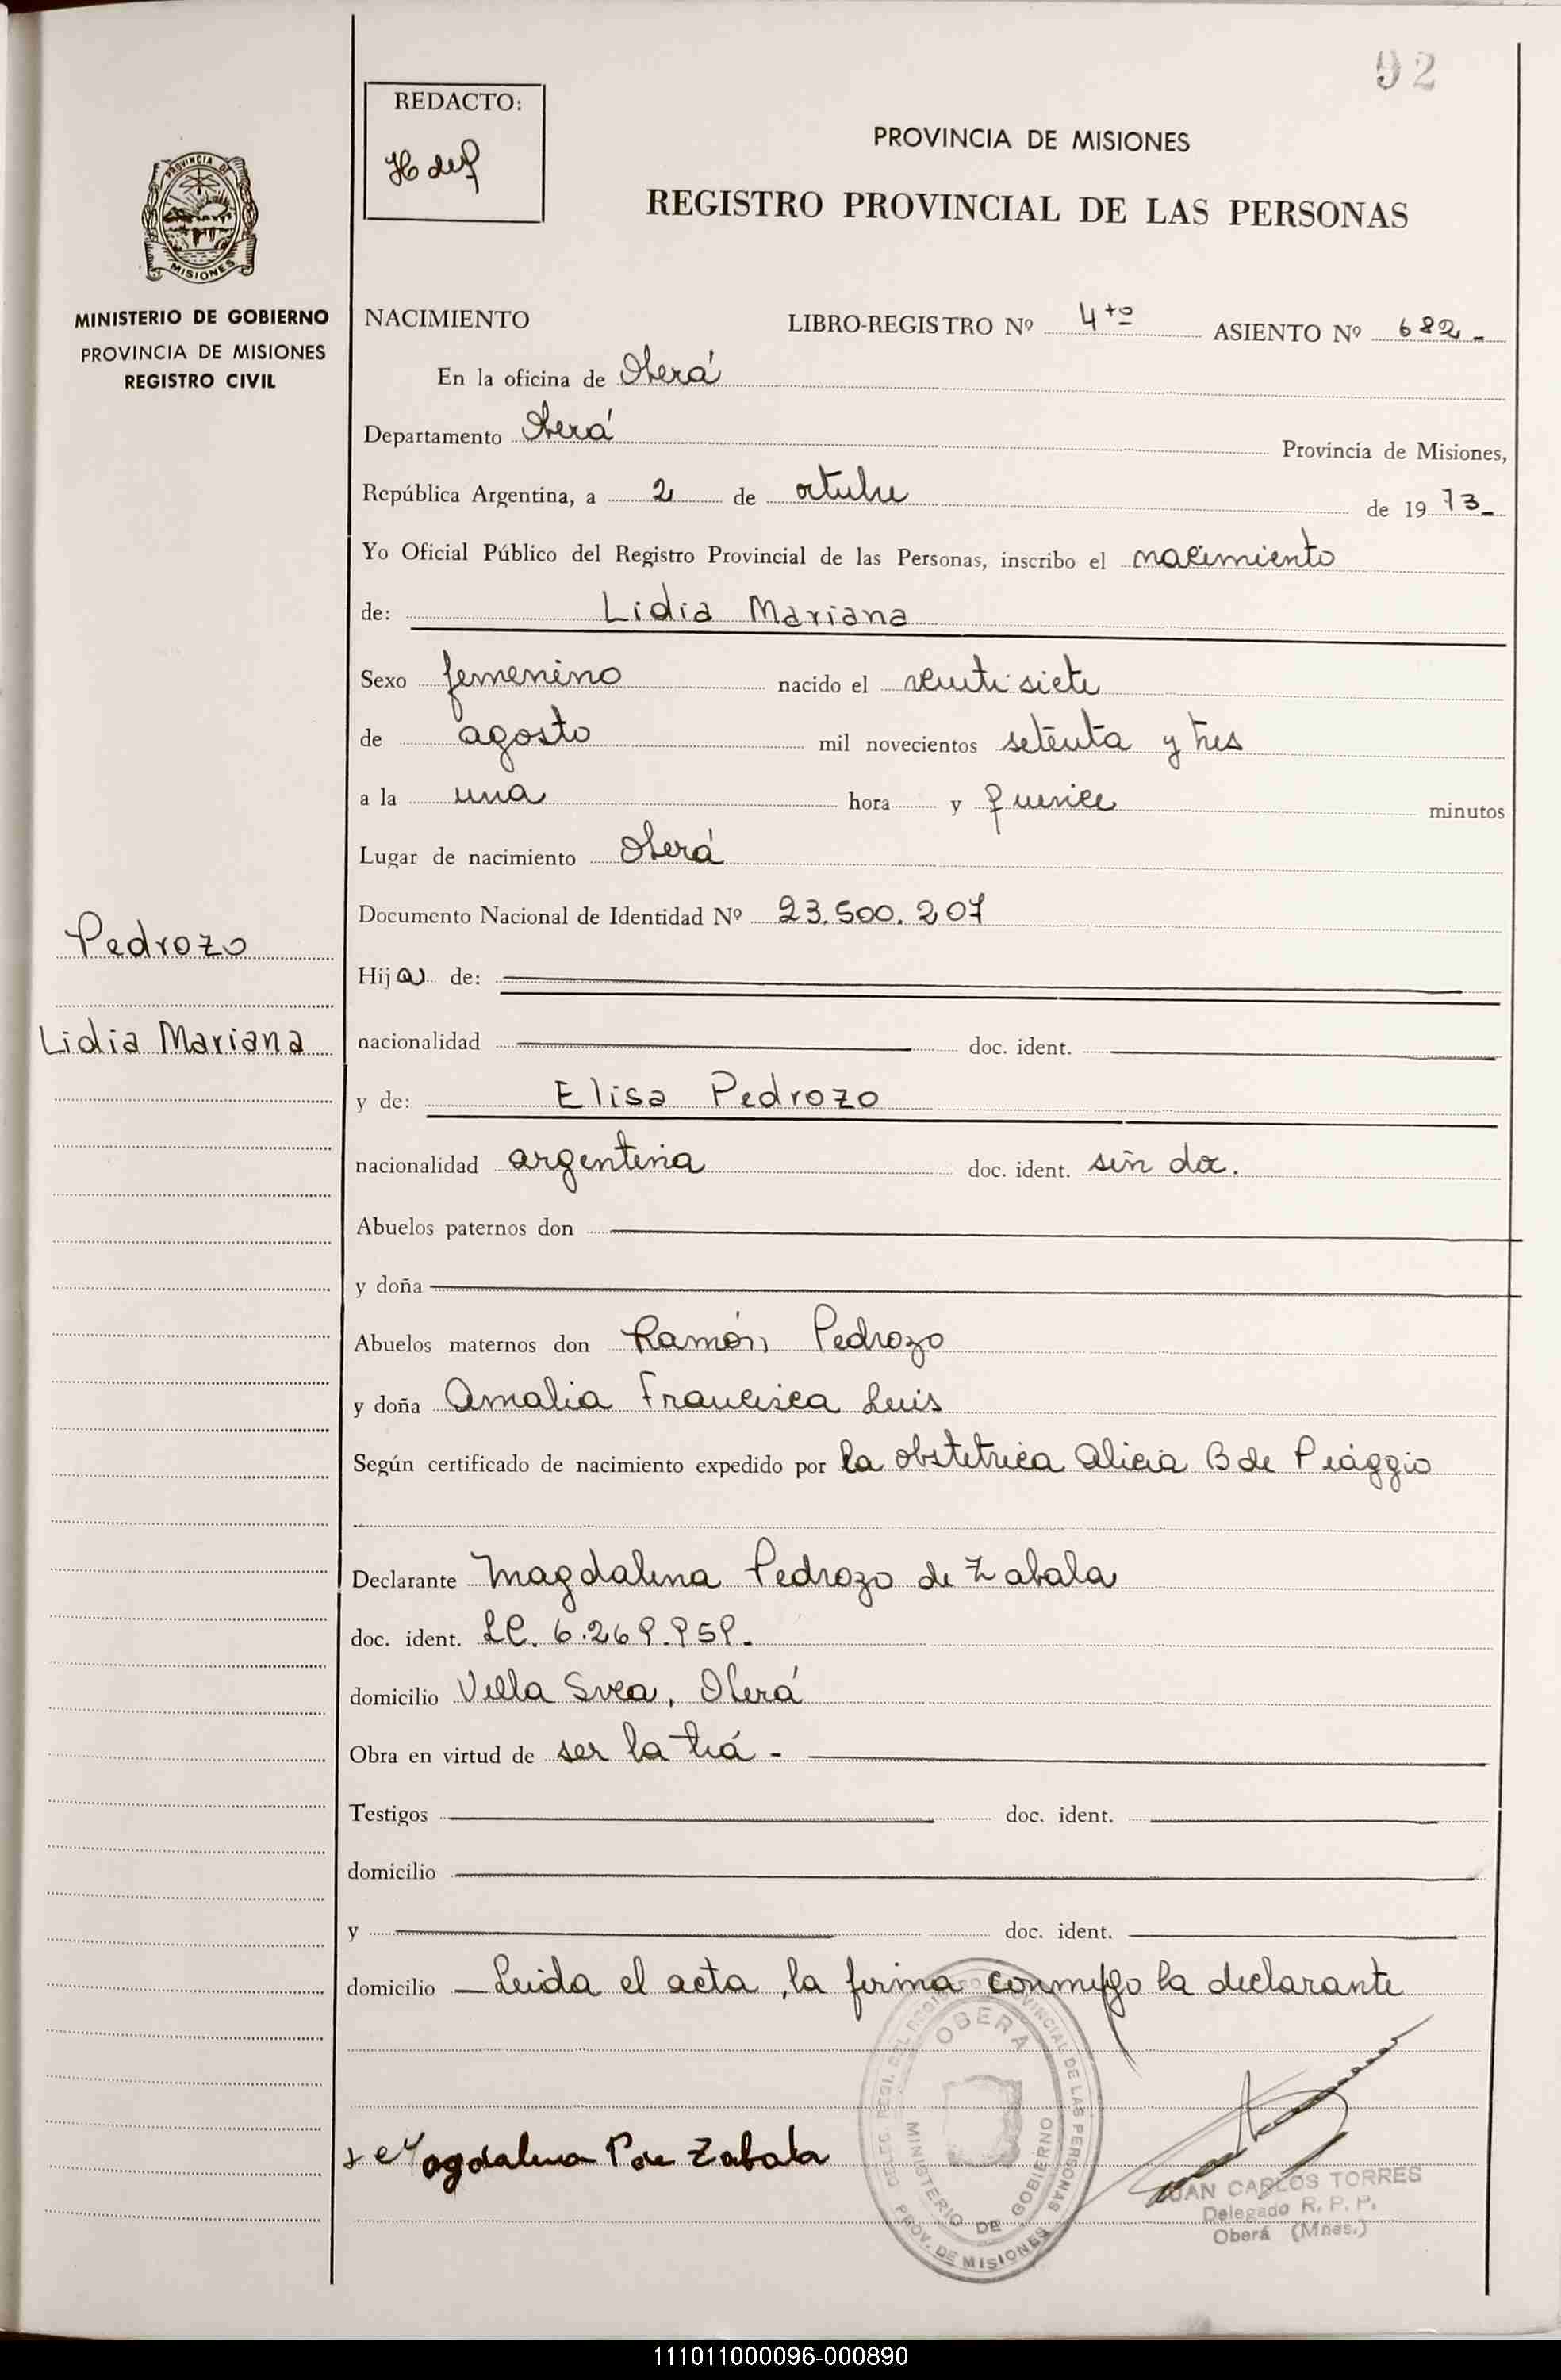 92
REDACTO:
PROVINCIA DE MISIONES
REGISTRO PROVINCIAL DE LAS PERSONAS
PROVINCIA DE
MISIONES
MINISTERIO DE GOBIERNO
PROVINCIA DE MISIONES
REGISTRO CIVIL
NACIMIENTO LIBRO-REGISTRO Nº 4to ASIENTO Nº 682-
En la oficina de Oberá
Departamento Oberá Provincia de Misiones,
República Argentina, a 2 de octubre de 1973-
Yo Oficial Público del Registro Provincial de las Personas, inscribo el nacimiento
de: Lidia Mariana
Sexo femenino nacido el veintisiete
de agosto mil novecientos setenta y tres
a la una hora y quince minutos
Lugar de nacimiento Oberá
Documento Nacional de Identidad Nº 23.500.207
Pedrozo
Hija de:
Lidia Mariana
nacionalidad doc. ident.
y de: Elisa Pedrozo
nacionalidad argentina doc. ident. sin doc.
Abuelos paternos don
y doña
Abuelos maternos don Ramón Pedrozo
y doña Amalia Francisca Luis
Según certificado de nacimiento expedido por la obstetrica Alicia B de Piaggio
Declarante Magdalena Pedrozo de Zabala
doc. ident. LC. 6.269.959.
domicilio Villa Svea, Oberá
Obra en virtud de ser la tiá -
Testigos doc. ident.
domicilio
y doc. ident.
domicilio - Leida el acta, la firma conmigo la declarante
DELEG. REGI. DEL REGISTRO PROVINCIAL DE LAS PERSONAS
OBERA
MINISTERIO DE GOBIERNO
PROV. DE MISIONES
Magdalena P de Zabala
JUAN CARLOS TORRES
Delegado R. P. P.
Oberá (Mnes.)
111011000096-000890